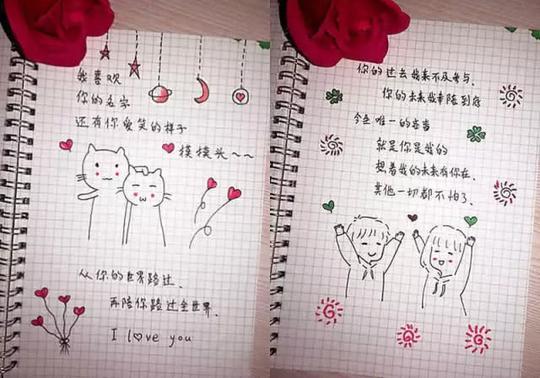 我喜欢
你的名字
还有你爱笑的样子
摸摸头~~
从你的世界路过.
再陪你路过全世界.
I love you
你的过去我来不及参与.
你的未来我奉陪到底
今生唯一的幸事
就是你是我的
想着我的未来有你在.
其他一切都不怕了.